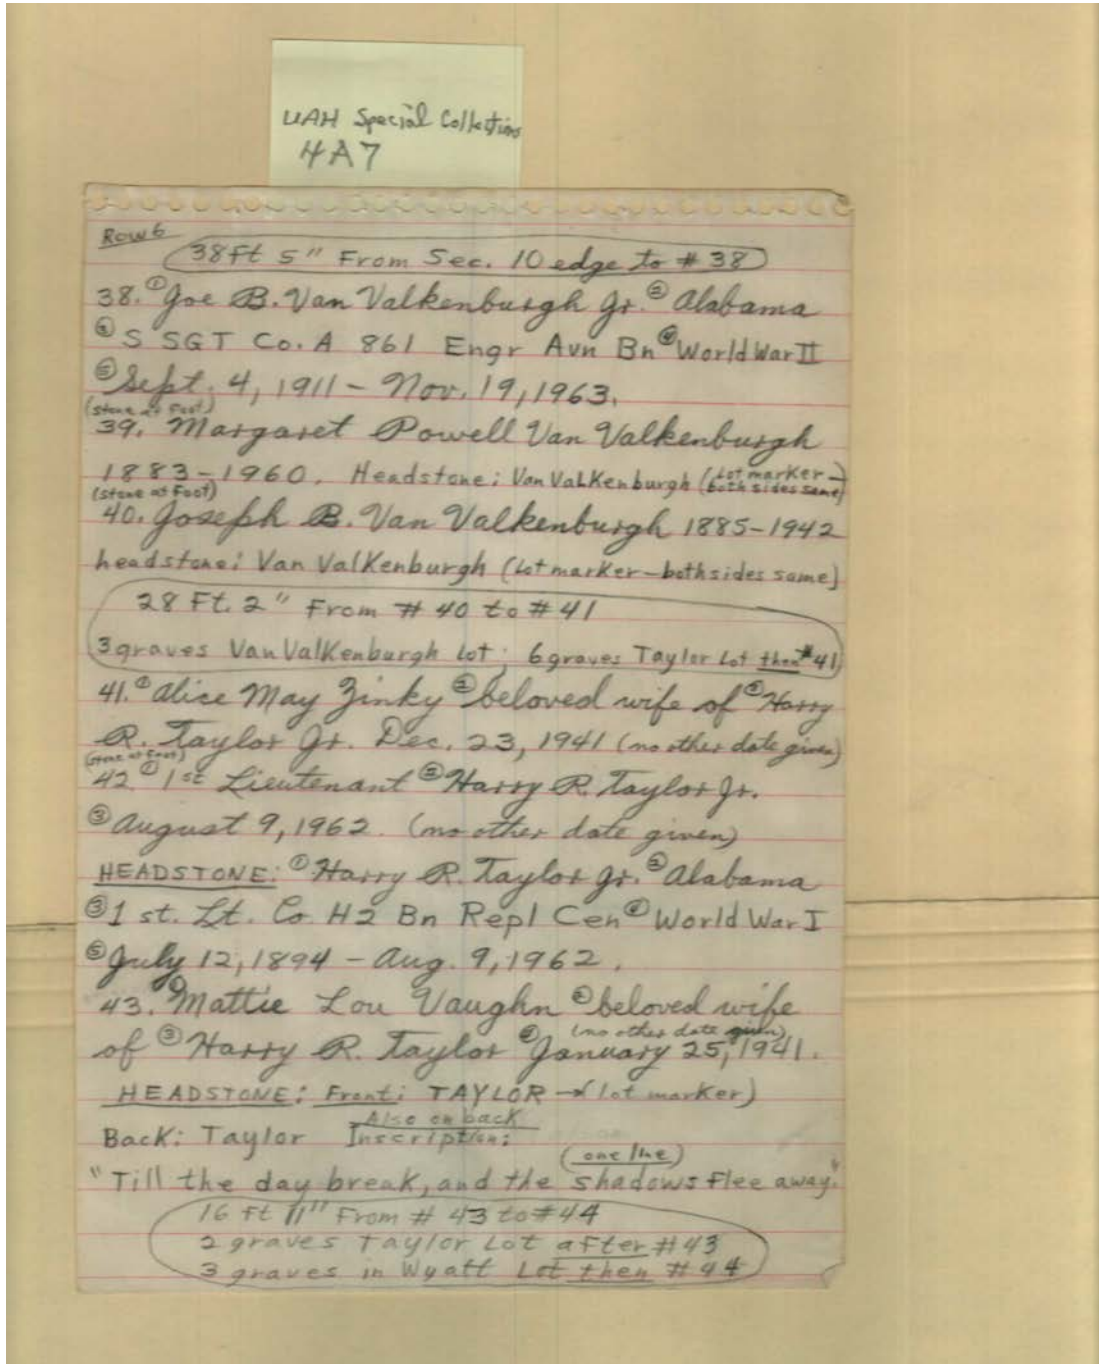 UAH Special Collections
4A7
Row 6
38 Ft 5" From Sec. 10 edge to # 38
38. ① Joe B. Van Valkenburgh Jr. ② Alabama
③ S SGT Co. A 861 Engr Avn Bn ④ World War II
⑤ Sept. 4, 1911 - Nov. 19, 1963.
(stone at Foot)
39. Margaret Powell Van Valkenburgh
1883-1960. Headstone: Van Valkenburgh (Lot marker - both sides same)
(stone at Foot)
40. Joseph B. Van Valkenburgh 1885-1942
headstone: Van Valkenburgh (Lot marker - both sides same)
28 Ft. 2" From # 40 to # 41
3 graves Van Valkenburgh Lot; 6 graves Taylor Lot then # 41
41. ① Alice May Zinky ② beloved wife of ③ Harry
R. Taylor Jr. Dec. 23, 1941 (no other date given)
(stone at Foot)
42 ① 1st Lieutenant ② Harry R. Taylor Jr.
③ August 9, 1962. (no other date given)
HEADSTONE: ① Harry R. Taylor Jr. ② Alabama
③ 1 st. Lt. Co. H 2 Bn Repl Cen ④ World War I
⑤ July 12, 1894 - Aug. 9, 1962.
43. ① Mattie Lou Vaughn ② beloved wife
(no other date given)
of ③ Harry R. Taylor ④ January 25, 1941.
HEADSTONE: Front: TAYLOR → (lot marker)
Also on back
Back: Taylor Inscription:
(one line)
"Till the day break, and the shadows flee away."
16 Ft 11" From # 43 to # 44
2 graves Taylor Lot after # 43
3 graves in Wyatt Lot then # 44